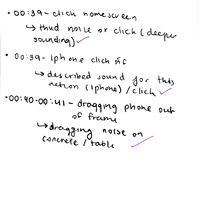 • 00:39 - click homescreen
↳ thud noise or click (deeper
sounding) ✓
• 00:39 - iphone click off
↳ described sound for this
action (iphone) / click ✓
• 00:40-00:41 - dragging phone out
of frame
↳ dragging noise on
concrete / table ✓